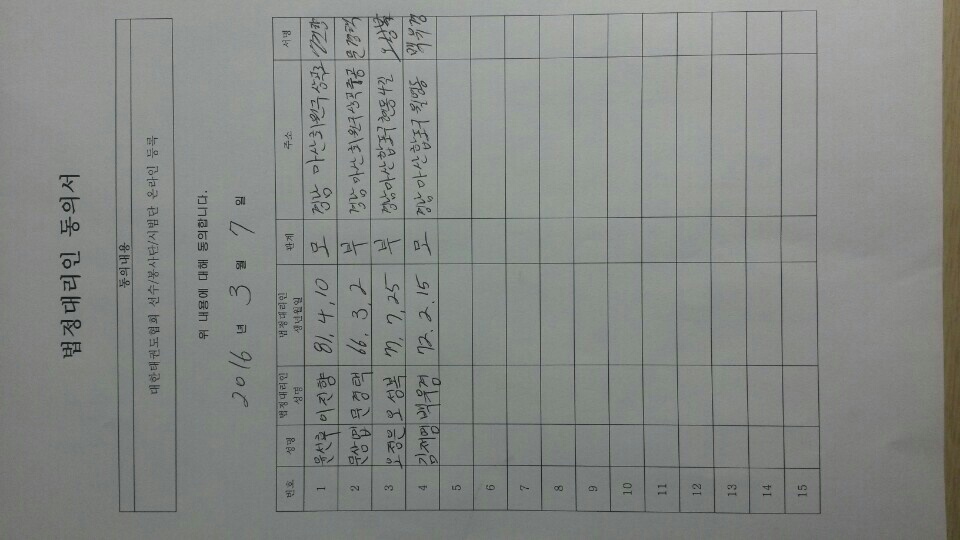 법정대리인 동의서
동의내용
대한태권도협회 선수/봉사단/시범단 온라인 등록
위 내용에 대해 동의합니다.
2016 년 3 월 7 일
번호 성명 법정대리인 성명 법정대리인 생년월일 관계 주소 서명
1 윤선후 이진향 81, 4, 10 모 경남 마산회원구
2 문상협 문경택 66, 3, 2 부 경남 마산회원구 문경택
3 오정은 오성복 71, 7, 25 부 경남 마산합포구 현동4길 오성복
4 김제영 백유경 72. 2. 15 모 경남 마산합포구 월영동 백유경
5
6
7
8
9
10
11
12
13
14
15